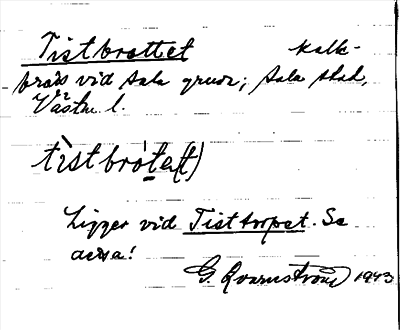 Tistbrottet kalk-
brott vid Sala gruva; Sala stad,
Västm l.
tìstbrò́te(t)
Ligger vid Tisttorpet. Se
denna!
G. Qvarnström 1943